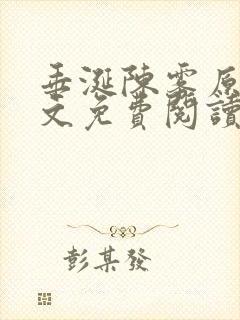 垂涎陳霧原
文免費閱讀
彭某發